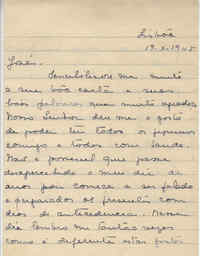 Lisbôa
19.X.1945
José.
Sensibilisou me muito
a sua bôa carta e suas
boas palavras que muito agradeço
Nosso Senhor deu me o gosto
de poder ter todos os pequenos
comigo e todos com saude.
Não é possivel que passe
despercebido o meu dia de
anos pois começa a ser falado
e preparados os presentes com
dias de antecedencia. Nesse
dia lembro me tantas vezes
como é diferente estar perto